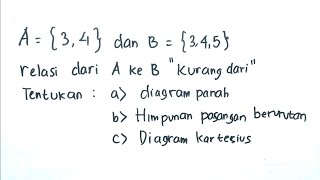 A = {3,4} dan B = {3,4,5}
relasi dari A ke B "kurang dari"
Tentukan : a> diagram panah
b> Himpunan pasangan berurutan
c> Diagram kartesius